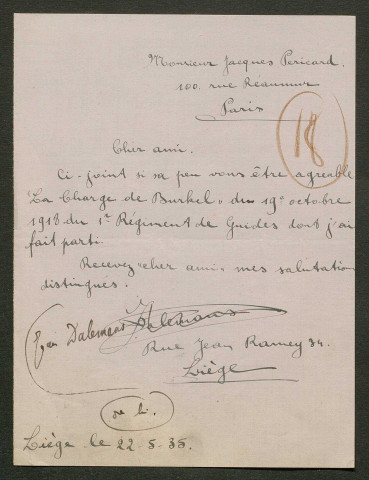 Monsieur Jacques Péricard.
100. rue Réaumur
Paris
18
Cher ami.
Ci-joint si sa peu vous être agreable
"La Charge de Burkel" du 19e octobre
1918 du 1r Régiment de Guides dont j'ai
fait parti.
Recevez cher ami, mes salutation
distingués.
Dalemans
Rue Jean Ramey 34.
Liège
Liège le 22-5-35.